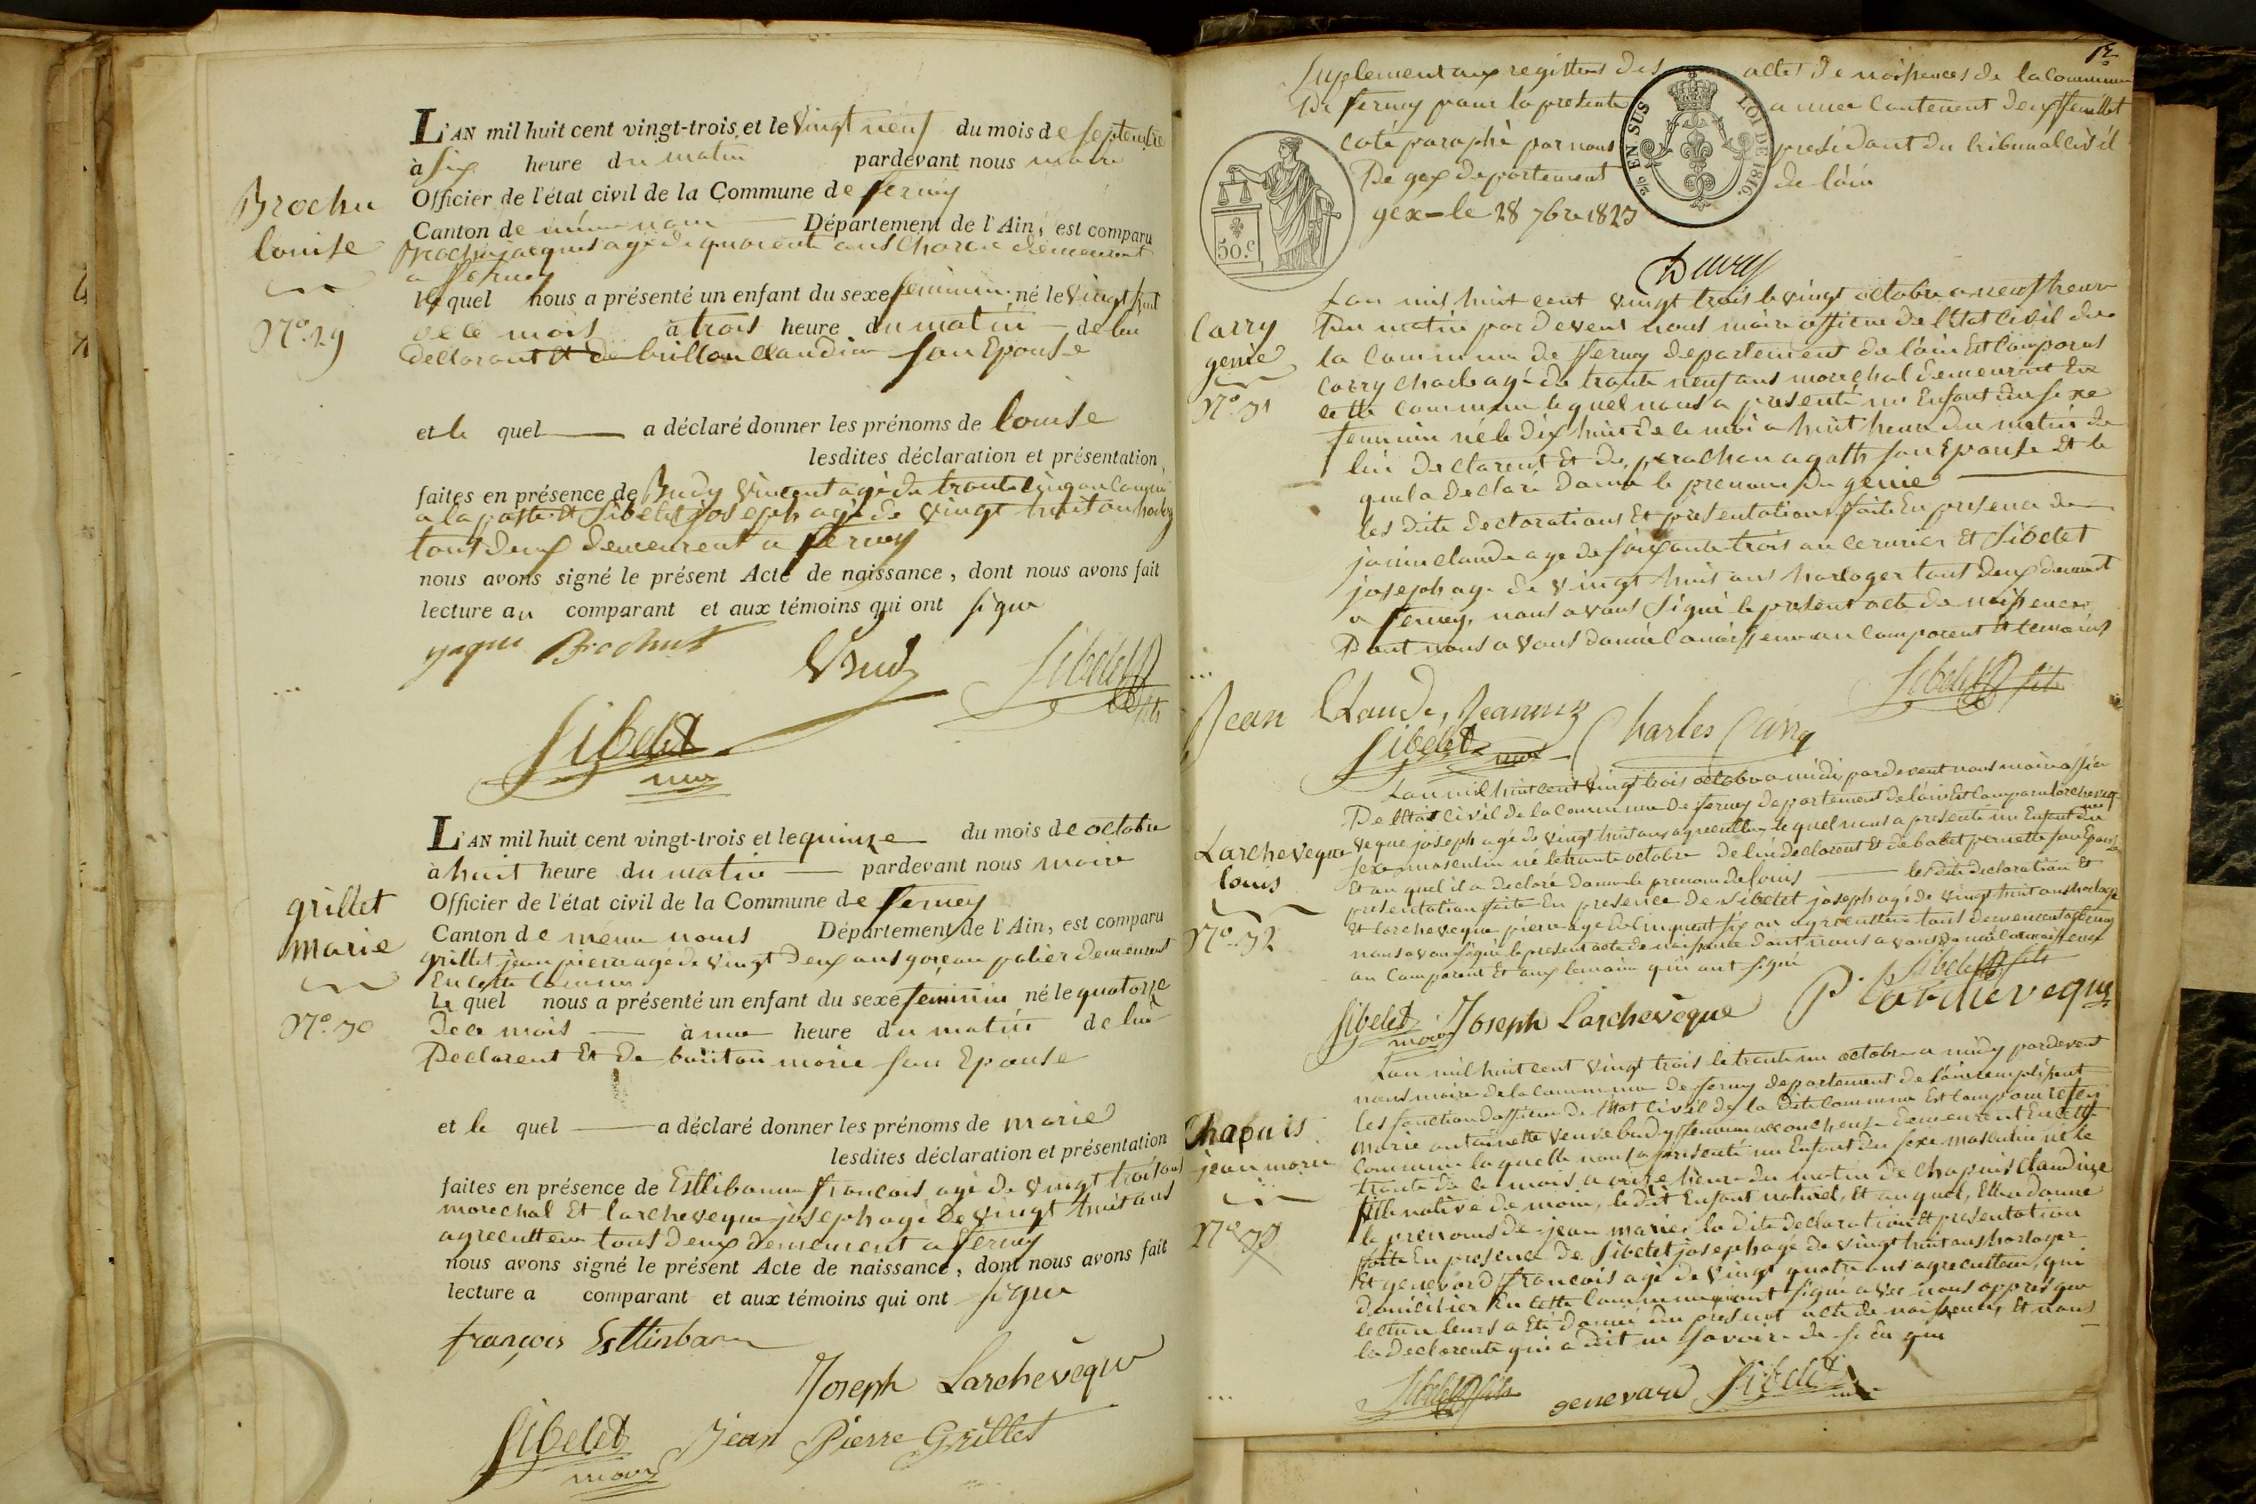 Brochu
louise
N°. 29
L'AN mil huit cent vingt-trois, et le vingt neuf du mois de septembre
à six heure du matin pardevant nous maire
Officier de l'état civil de la Commune de ferney
Canton de même nom Département de l'Ain, est comparu
Brochu jacques agé de quarente ans demeurent
a ferney
le quel nous a présenté un enfant du sexe feminin né le vingt huit
de ce mois à trois heure du matin de lui
declarant et de brillon claudine son Epouse
et le quel a déclaré donner les prénoms de louise
lesdites déclaration et présentation
faites en présence de Budy Vincent agé de trente cinq an
a la poste et Sibelet joseph agé de vingt huit an
tout deux demeurent a ferney
nous avons signé le présent Acte de naissance, dont nous avons fait
lecture au comparant et aux témoins qui ont signe
yaque Brochut
VBudy
Sibelet fils
Sibelet
grillet
marie
N°. 30
L'AN mil huit cent vingt-trois et le quinze du mois de octobre
à huit heure du matin pardevant nous maire
Officier de l'état civil de la Commune de ferney
Canton de meme noms Département de l'Ain, est comparu
grillet jean pierre agé de vingt deux ans demeurent
En cette Commune
le quel nous a présenté un enfant du sexe feminin né le quatorze
de ce mois à une heure du matin de lui
Declarent Et De bouton marie son Epouse
et le quel a déclaré donner les prénoms de marie
lesdites déclaration et présentation
faites en présence de Estlibanne francois agé de vingt trois ans
marechal Et larcheveque joseph agé de vingt huit ans
agreculteur tous deux demeurent a ferney
nous avons signé le présent Acte de naissance, dont nous avons fait
lecture a comparant et aux témoins qui ont signe
françois Esttinbann
Joseph Larchevèque
Sibelet
maire
Jean Pierre Grillet
Suplement aux registres des actes de naissences de la Commune
De ferney pour la presente annee contenent deux feuillet
coté paraphé par nous president du tribunal civil
De gex departement de l'ain
gex le 28 7bre 1823
2/0 EN SUS
LOI DE 1816.
50.c
Carry
genie
N°. 31
Lan mil huit cent vingt trois le vingt octobre a neuf heure
du matin par devent nous maire officier de l'Etat Civil de
la Commune de ferney departement de l'ain Est Comparus
Carry charles agé de trante neuf ans marechal demeurent En
cette commune le quel nous a presenté un Enfant du sexe
feminin né le dix huit de ce moi a huit heure du matin de
lui declarent Et De perachon agathe son Epouse Et le
quel a declaré donné le prenom De genie
les dite declarations Et presentations faite En presence de
janin claude agé de soixante trois an Et Sibelet
joseph agé de vingt huit ans horloger tout deux demeurent
a ferney, nous avons signé le present acte de naissence
Dont nous avons donné Conoissence au Comparent Et temoins
Jean Claude, Jeannin
Sibelet fils
Sibelet
Charles Cariy
Larcheveque
louis
N°. 32
Lan mil huit cent vingt trois octobre a midi par devent nous maire officier
De l'Etat Civil de la Commune De ferney departement de l'ain Est Comparu larche
veque joseph agé de vingt huit ans agreculteur le quel nous a presenté un Enfant du
sexe masculin né le trante octobre de lui declarent Et de babet pernette son Epouse
Et au quel il a declaré donne le prenom de louis les dite declaration Et
presentation faite En presence De Sibelet joseph agé de vingt huit ans horloger
Et larcheveque pierre agé de cinquant six an agreculteur tout demeurent a ferney
nous avons signé le present acte de naissence dont nous avons donné Conoissence
au Comparent Et aux temoin qui ont signé
Sibelet fils
Sibelet
maire
Joseph Larchevèque
P. Larchevèque
Chapuis
jean marie
N°. 33
Lan mil huit cent vingt trois le trante un octobre a midy par devent
nous maire de la Commune de ferney departement de l'ain remplissent
les fonction d'officier De l'Etat Civil de la Dite Commune Est Comparu
marie antoinette veuve budy femme accoucheuse demeurent En cette
Commune la quelle nous a presenté un Enfant du sexe masculin né le
trante de ce mois a onze heure du matin de Chapuis Claudine
fille native de moin, le dit Enfant naturel, Et au quel, Elle donne
le prenoms de jean marie, la dite declaration Et presentation
faite En presence De Sibelet joseph agé de vingt huit ans horloger
Et genevard francois agé de vingt quatre ans agreculteur, qui
domicilier En cette Commune ont signé avec nous apprès que
lecture leurs a Eté donné du present acte de naissence, Et nous
la declarente qui a dit ne savoir de ce En que
Sibelet fils
genevard
Sibelet